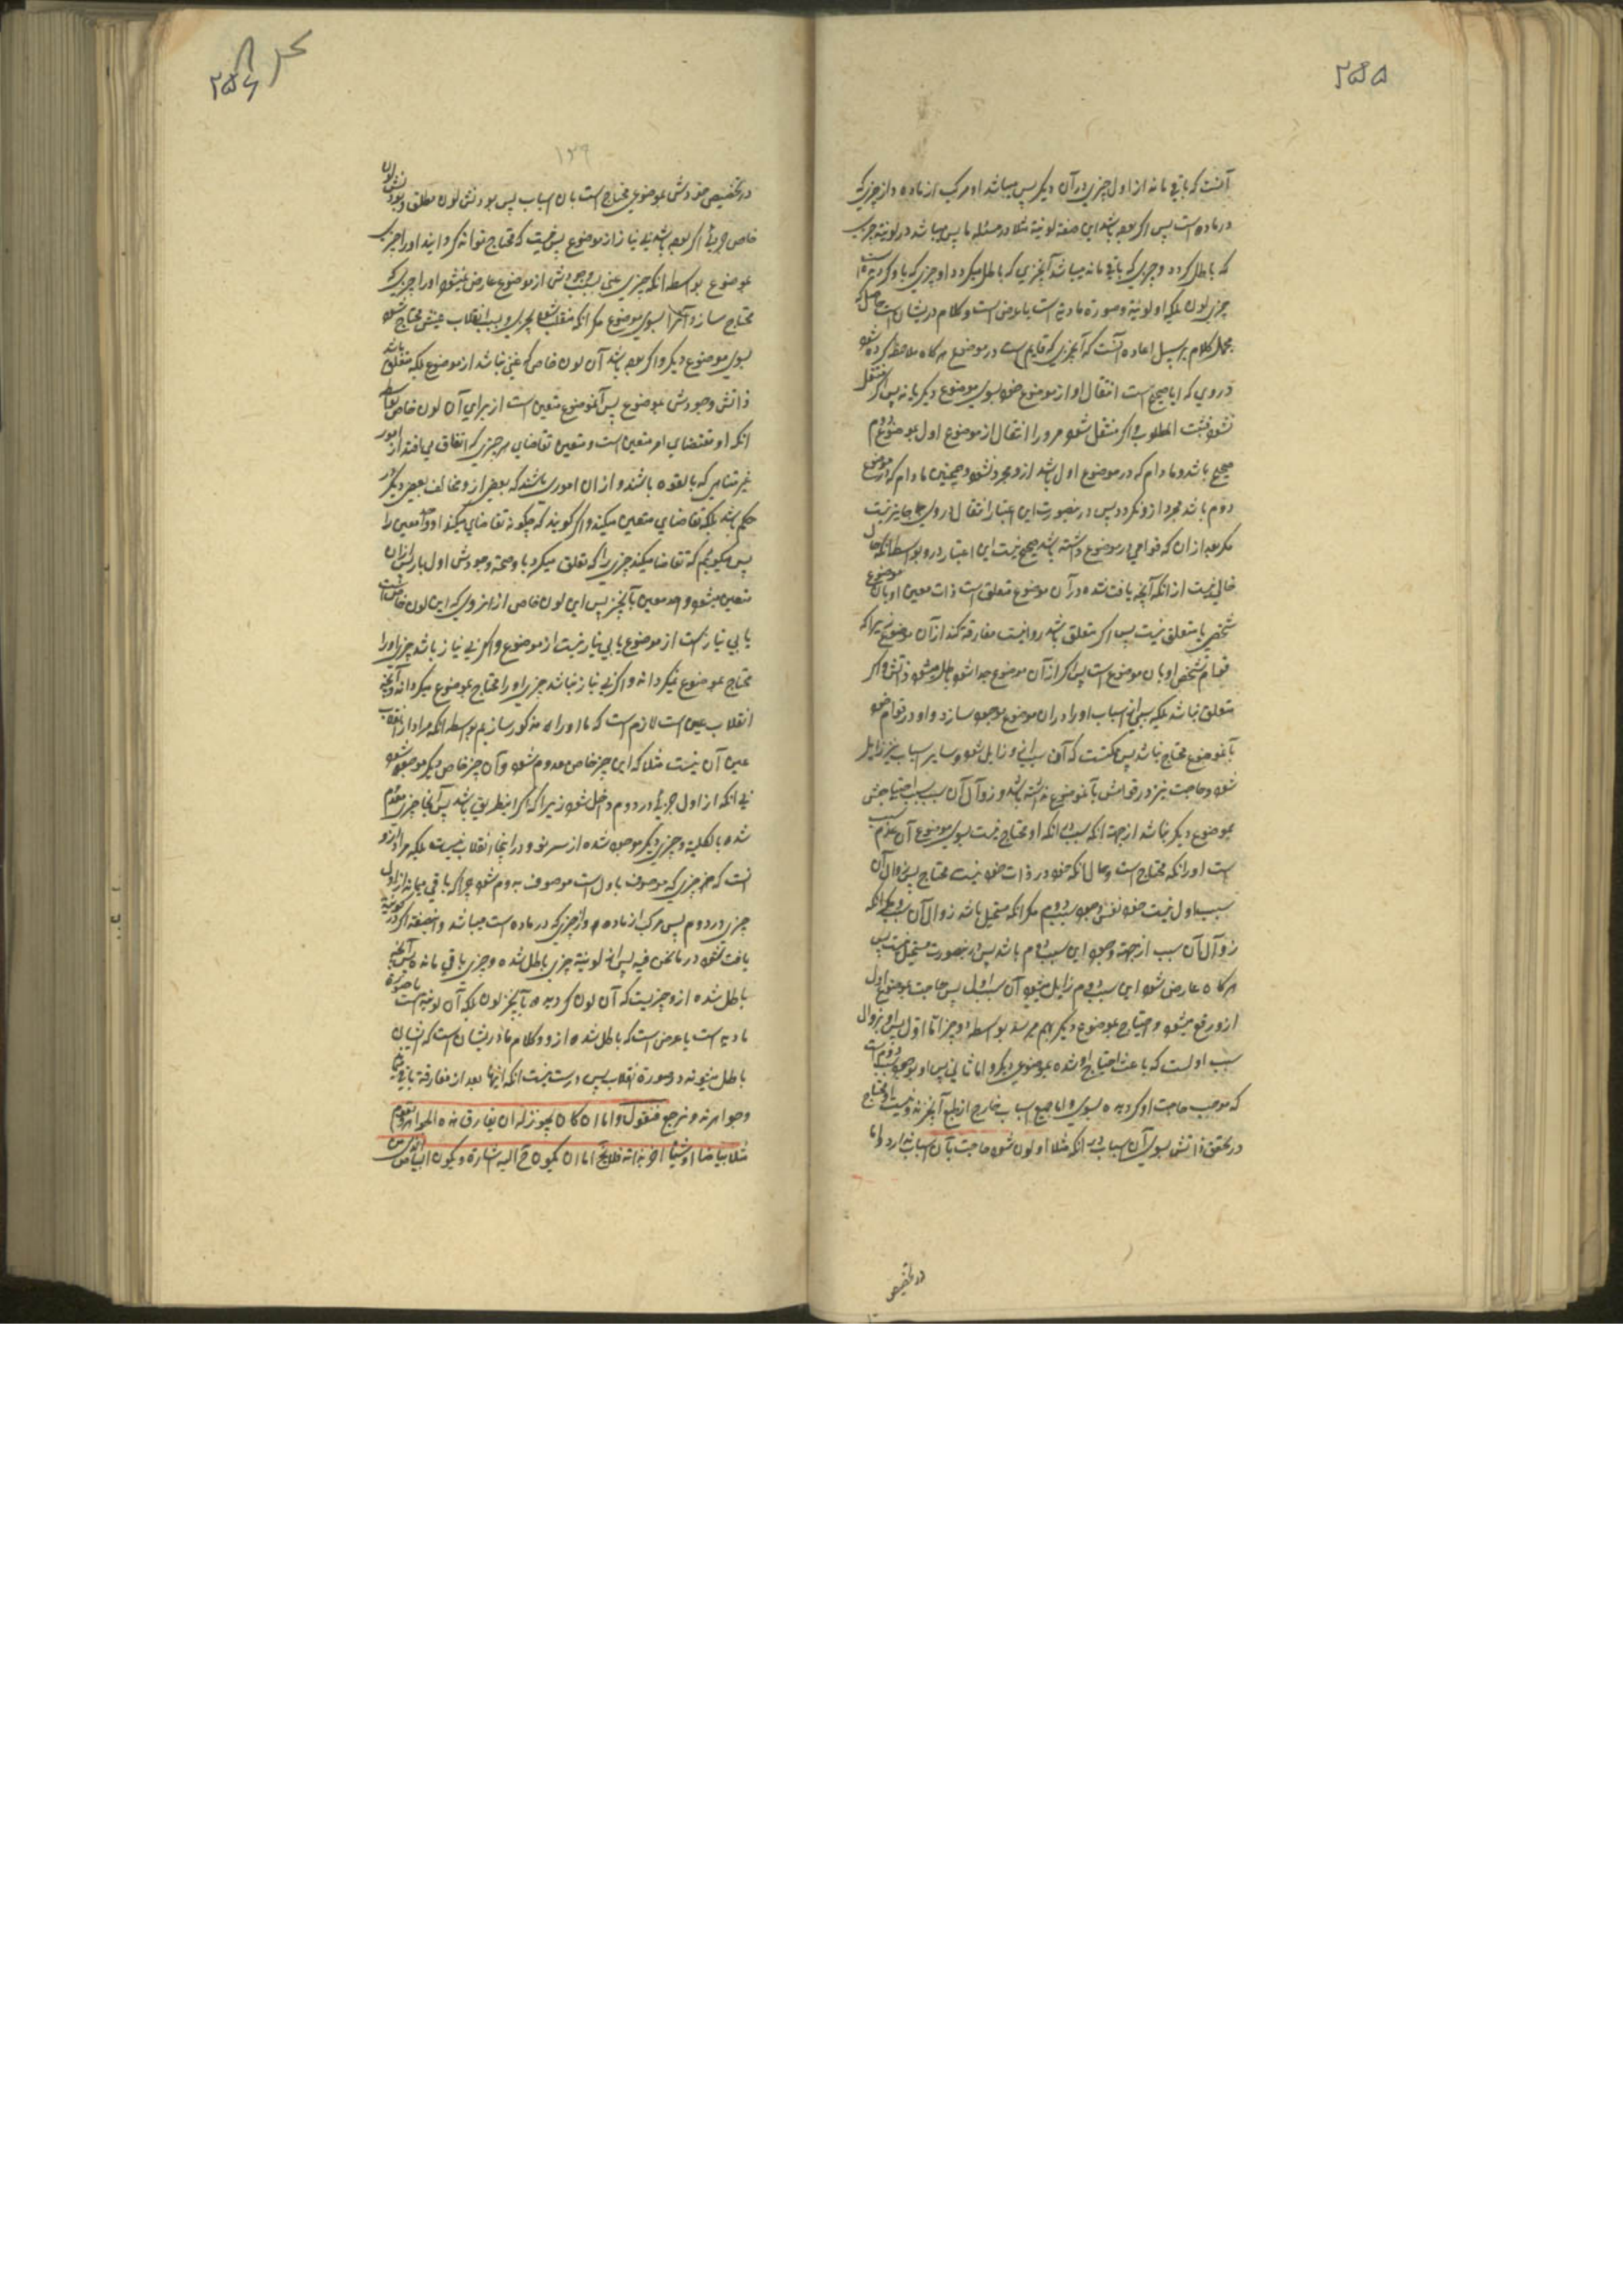 ۲۵۵
آنست که باقی مانه از اول چیزی در آن دیگر پس میباشد او مرکب از ماده و از چیزی که
در ماده است پس اگر بوده باشد این صفة لونیة مثلا در مسئله ما پس میباشد در لونیة چیزی
که باطل کردد و چیزی که باقی مانه میباشد آنچیزی که باطل میکردد او چیزی که باو کردیده است
چیزی لون بلکه او لونیة و صورة مادیه است یا عرض است و کلام در یشان است حاصل که
مجمل کلام بر سبیل اعاده آنست که آنچیزی که قایم است در موضوع هر کاه ملاحظه کرده شود
در وی که ایا صحیح است انتقال او از موضوع خود بسوی موضوع دیگر یا نه پس اگر منتقل
نشود فثبت المطلوب و اگر منتقل شود مرو را انتقال از موضوع اول بموضوع دوم
صحیح باشد و مادام که در موضوع اول باشد ازو مجرد نشود و همچنین مادام که در موضوع
دوم باشد مجرد ازو نکردد پس درینصورت این اعتبار انتقال در وی جایز نیست
مکر بعد از ان که قوامی در موضوع داشته باشد صحیح نیست این اعتبار درو بواسطه انکه حال
خالی نیست از انکه آنچه یافت شده در آن موضوع متعلق است ذات معین او بان موضوع
شخصی یا متعلق نیست پس اگر متعلق باشد روا نیست مفارقة کند از آن موضوع زیرا که
قوام تشخص او بان موضوع است پس اگر از آن موضوع جدا شود باطل میشود ذاتش و اگر
متعلق نباشد بلکه سببی از اسباب او را در ان موضوع موجود سازد و او در قوام خود
بآنموضوع محتاج نباشد پس ممکنست که آن سبب ازو زایل شود و سایر اسباب نیز زایل
شود و حاجت نیز در قوامش بآنموضوع نداشته باشد و زوال آن سبب سبب احتیاجش
بموضوع دیگر نباشد از جهة انکه سبب انکه او محتاج نیست بسوی موضوع آن عدم سبب
است اورا انکه محتاج است و حال انکه خود در ذات خود نیست محتاج پس زوال آن
سبب اول نیست خود نفس وجود سبب دوم مکر انکه مستحیل باشد زوال آن سبب مکر انکه
زوال آن سبب از جهة وجود این سبب دوم باشد پس درینصورت مستحیل نیست پس
هر کاه عارض شود این سبب دوم زایل میشود آن سبب اول پس حاجت بموضوع اول
ازو رفع میشود و احتیاج بموضوع دیگر بهم میرسد بواسطه دو چیز اما اول پس او بزوال
سبب اولست که باعث احتیاج او شده بموضوعی دیگر و اما ثانی پس او بوجود سبب دوم است
که موجب حاجت او کردیده بسوی و اما جمیع اسباب خارج از طبع آنچیزند و نیست او محتاج
در تحقق ذاتش بسوی آن اسباب بر انکه مثلا او لون شود حاجت بآن اسباب ندارد اما
در تخصیص
۲۵۶
۱۲۹
در تخصیص خودش بموضوعی محتاج است بان اسباب پس بودنش لون مطلق و بودنش لون
خاص چیزی اگر بوده باشد بی نیاز از موضوع پس نیست که محتاج تواند کردانید اورا چیزی
بموضوع بواسطه انکه چیزی غنی بسبب وجودش از موضوع عارض نمیشود اورا چیزی که
محتاج سازد آنرا بسوی موضوع مکر انکه منقلب شود بچیزی و بسبب انقلاب عینش محتاج شود
بسوی موضوع دیگر و اگر بوده باشد آن لون خاص که غنی نباشد از موضوع بلکه متعلق باشد
ذاتش وجودش بموضوع پس آنموضوع متعین است از برای آن لون خاص بواسطه
انکه او مقتضای امر متعین است و متعین تقاضای هر چیزی که اتفاق می افتد از امور
غیر متناهی که بالقوه باشند و از ان اموری باشند که بعضی ازو مخالف بعضی دیگر در
حکم باشد بلکه تقاضای متعین میکند و اگر کویند که چکونه تقاضای میکند او واحد معین را
پس میکوییم که تقاضا میکند چیزی را که تعلق میکرد با و صحة وجودش اول بار پس از ان
متعین میشود واحد معین بآنچیز پس این لون خاص از انروی که این لون خاص است
یا بی نیاز است از موضوع یا بی نیاز نیست از موضوع و اگر بی نیاز باشد چیزی اورا
محتاج بموضوع نمیکرداند و اگر بی نیاز نباشد چیزی اورا محتاج بموضوع میکرداند و آنچه
انقلاب عین است لازم است که ما او را مذکور سازیم بواسطه انکه مراد از انقلاب
عین آن نیست مثلا که این چیز خاص معدوم شود و آن چیز خاص دیگر موجود شود
بی انکه از اول چیزی در دوم داخل شود زیرا که اگر اینطریق باشد پس آنجا چیزی معدوم
شده بالکلیة و چیزی دیگر موجود شده از سر نو و در اینجا انقلاب نیست بلکه مراد ازو
انست که هر چیزی که موصوف باول است موصوف بدوم شود چراکه باقی میماند از اول
چیزی در دوم پس مرکب از ماده و از چیزی که در ماده است میباشد و اینصفة اگر در لونیة
یافت شود در مانحن فیه پس از لونیة چیزی باطل شده و چیزی باقی مانده پس آنچه
باطل شده ازو چیزیست که آن لون کردیده بآنچیز لون بلکه آن لونیة است یا صورة
مادیه است یا عرض است که باطل شده ازو و کلام ما در یشان است که ایشان
باطل میشوند در صورة انقلاب پس درست نیست انکه اینها بعد از مفارقة باقی باشند
وجواهرند و نرجع فنقول و اما ان کان یجوز له ان یفارق هذه الجواهر و یقوم
مثلا بیاضا او شیئا اخر بذاته فلایخ اما ان یکون ح الیه اشارة و یکون البیاض